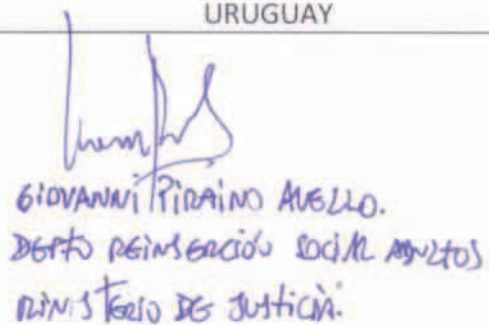 URUGUAY
GIOVANNI PIRAINO AVELLO.
DEPTO REINSERCIÓN SOCIAL ADULTOS
MINISTERIO DE JUSTICIA.